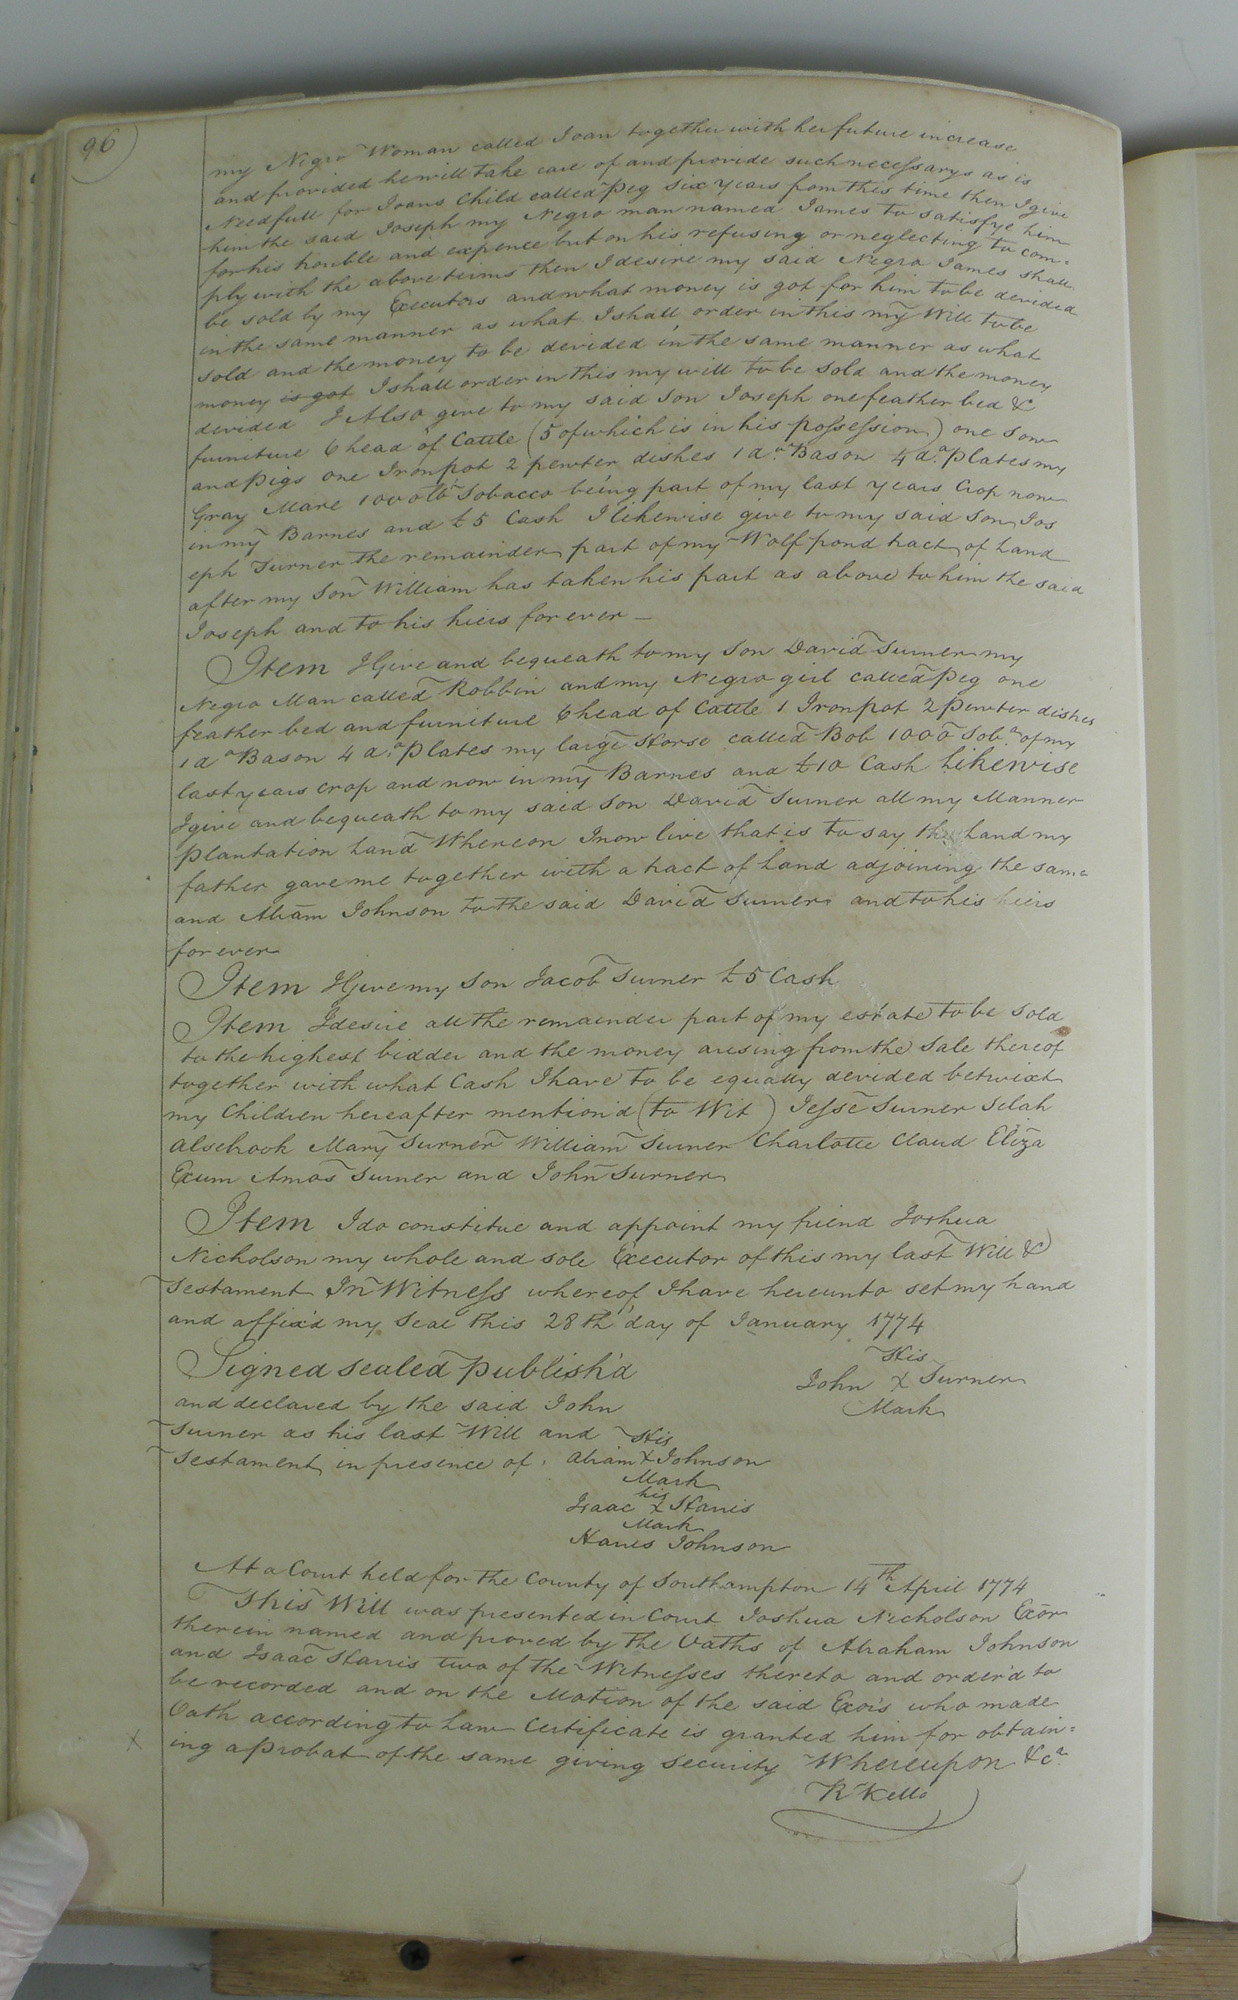 96
my Negro Woman called Joan together with her future increase
and provided he will take care of and provide such necessarys as is
Needfull for Joans Child called Peg six years from this time then I give
him the said Joseph my Negro man named James to satisfye him
for his trouble and expence but on his refusing or neglecting to com=
ply with the above terms then I desire my said Negro James shall
be sold by my Executors and what money is got for him to be devided
in the same manner as what I shall order in this my Will to be
sold and the money to be devided in the same manner as what
money is got I shall order in this my will to be sold and the money
devided I Also give to my said Son Joseph one feather bed &
furniture 6 head of Cattle (5 of which is in his possession) one Sow
and Pigs one Iron pot 2 pewter dishes 1 do. Bason 4 do. Plates my
Gray Mare 1000 lb Tobacco being part of my last years Crop now
in my Barnes and £5 Cash I likewise give to my said Son Jos
eph Turner the remainder part of my Wolf pond tract of Land
after my Son William has taken his part as above to him the said
Joseph and to his hiers for ever —
Item I Give and bequeath to my Son David Turner my
Negro Man called Robbin and my Negro girl called Peg one
feather bed and furniture 6 head of Cattle 1 Iron pot 2 Pewter dishes
1 do Bason 4 do. Plates my large Horse called Bob 1000 Tob.o of my
last years crop and now in my Barnes and £10 Cash Likewise
I give and bequeath to my said Son David Turner all my Manner
Plantation Land Whereon I now live that is to say the Land my
father gave me together with a tract of Land adjoining the same
and Abram Johnson to the said David Turner and to his hiers
for ever
Item I Give my Son Jacob Turner £5 Cash
Item I desire all the remainder part of my estate to be Sold
to the highest bidder and the money arising from the Sale thereof
together with what Cash I have to be equally devided betwixt
my Children hereafter mention'd (to Wit) Jesse Turner Selah
Alsebrook Mary Turner William Turner Charlotte Claud Eliza
Exum Amos Turner and John Turner
Item I do constitue and appoint my friend Joshua
Nicholson my whole and sole Executor of this my last Will &
Testament In Witness whereof I have hereunto set my hand
and affixd my Seal this 28th day of January 1774
His
John X Turner
Mark
Signed Sealed Publish'd
and declared by the said John
Turner as his last Will and
Testament in presence of
His
Abram X Johnson
Mark
his
Isaac X Harris
Mark
Harris Johnson
At a Court held for the County of Southampton 14th April 1774
This Will was presented in Court Joshua Nicholson Exor
therein named and proved by the Oaths of Abraham Johnson
and Isaac Harris two of the Witnesses thereto and order'd to
be recorded and on the Motion of the said Exors who made
Oath according to Law Certificate is granted him for obtain=
ing a Probat of the same giving security Whereupon &ca
X
R Kello